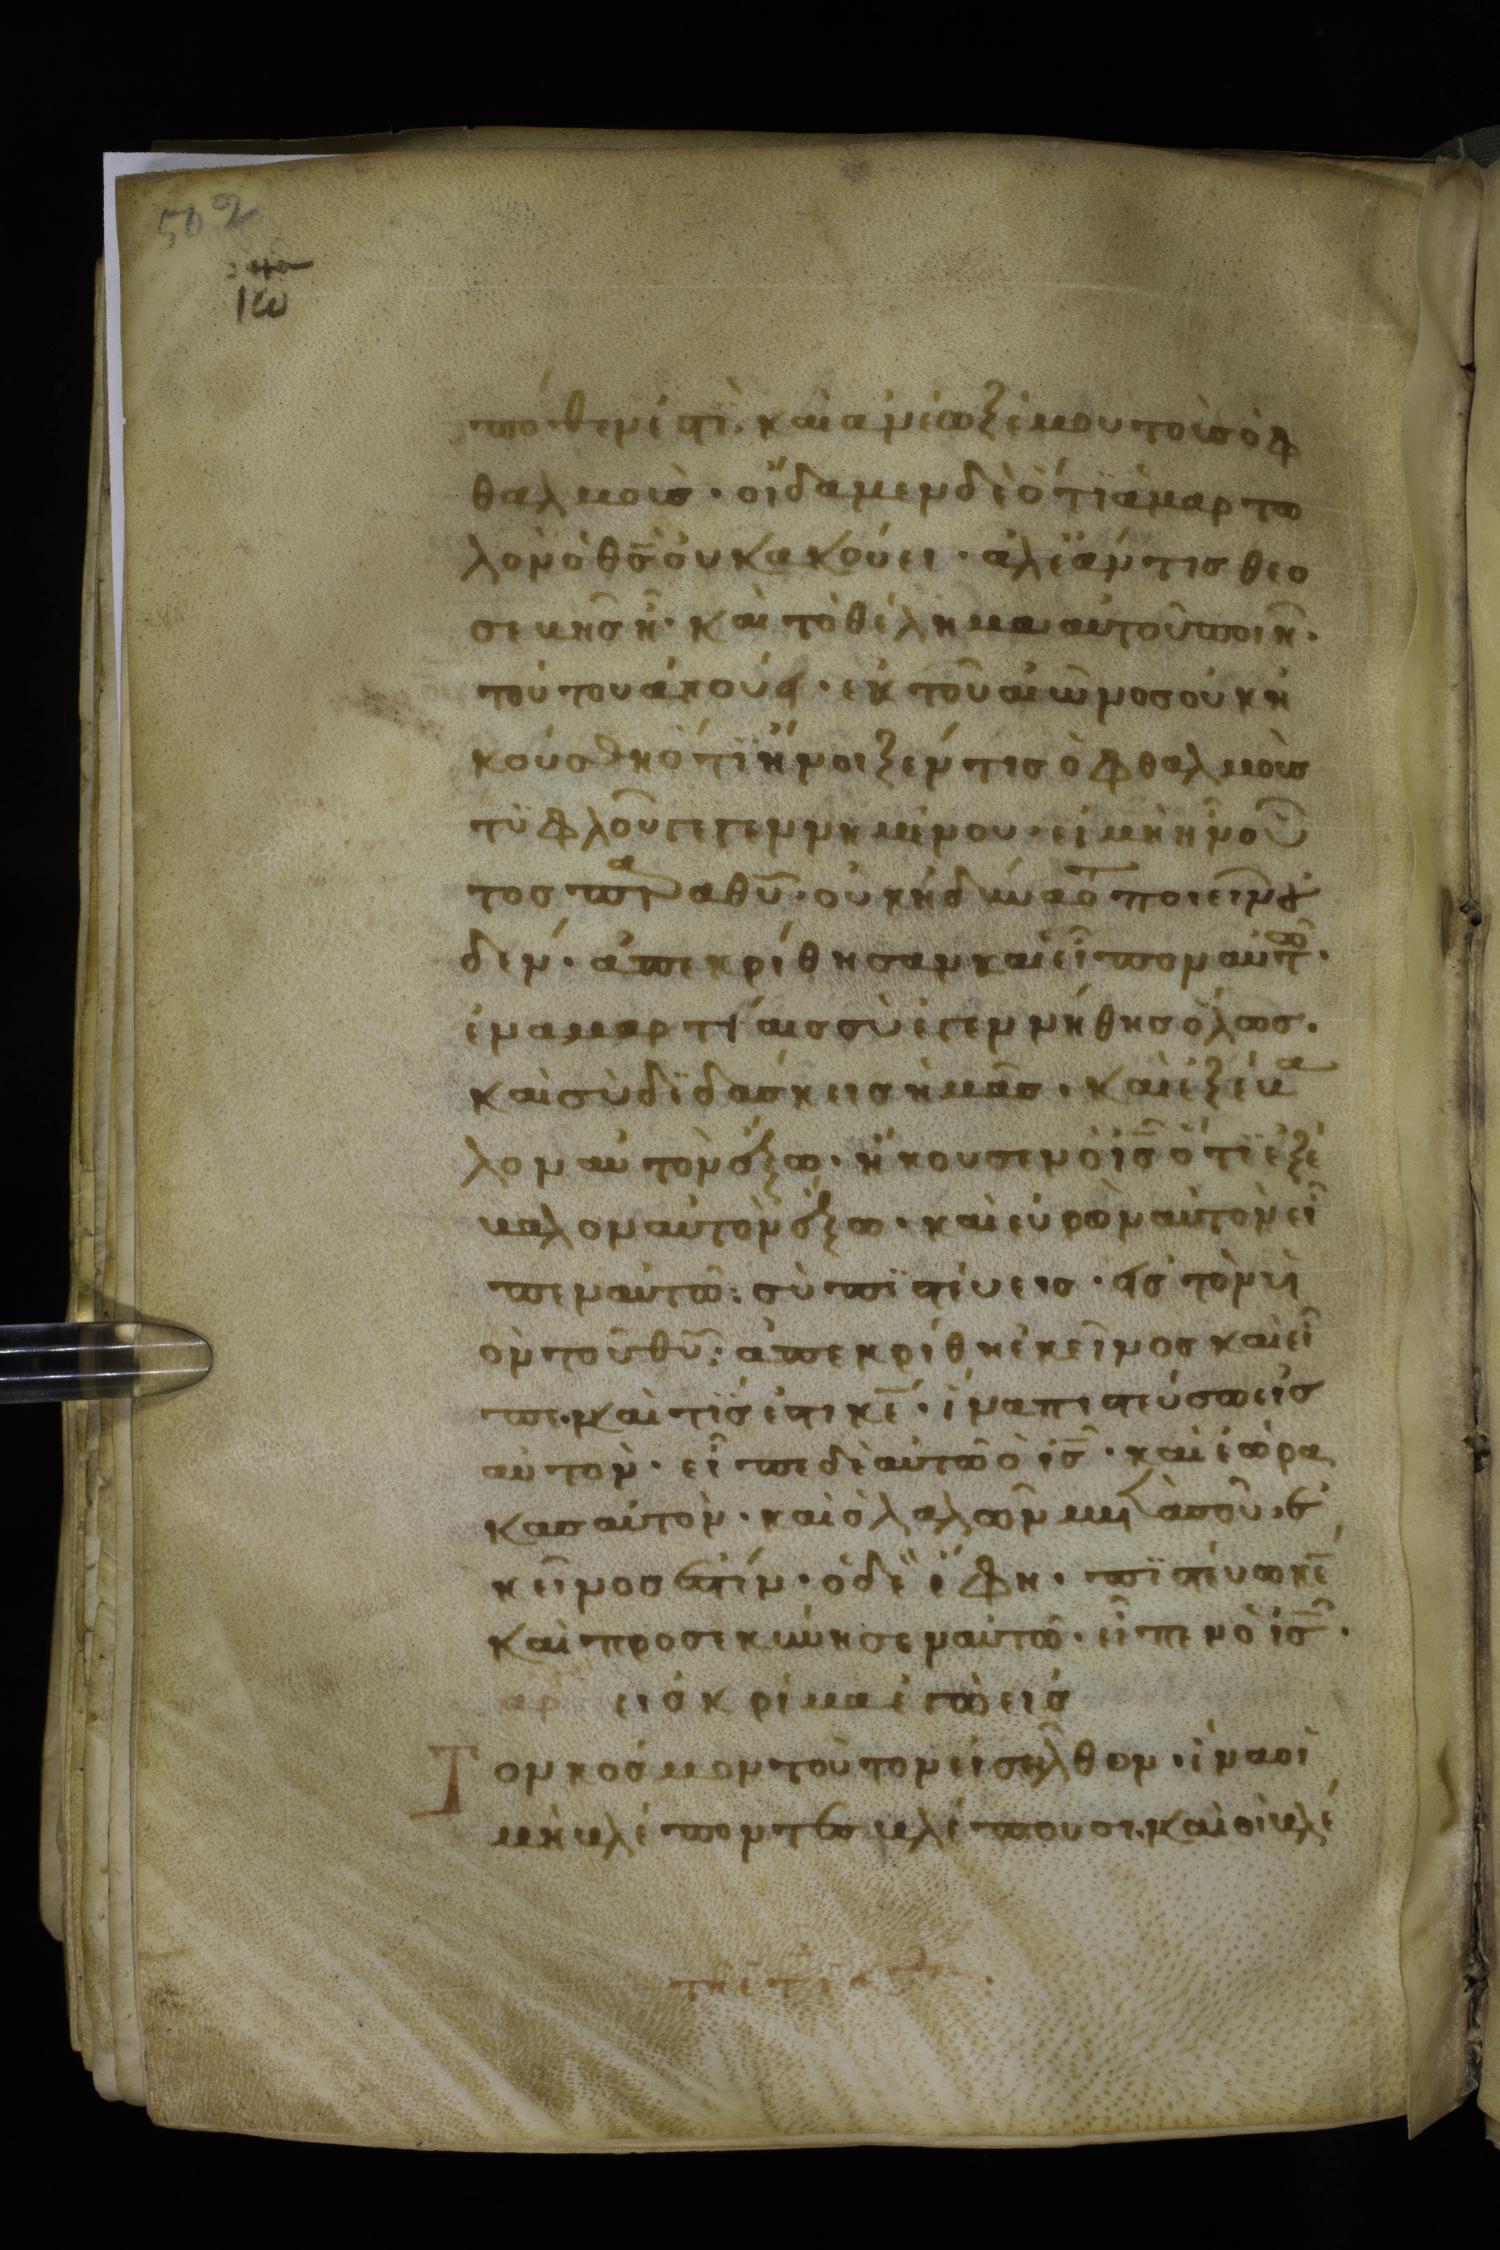 502
ιω
πόθεν ἐστὶ· καὶ ἀνέωξέ μου τοὺς ὀφ
θαλμούς· οἴδαμεν δὲ ὅτι ἁμαρτω
λὸν ὁ θς οὐκ ἀκούει· ἀλ' ἐάν τις θεο
σεβὴς ἦ· καὶ τὸ θέλημα αὐτοῦ ποιῆ·
τούτου ἀκούει· ἐκ τοῦ αἰῶνος οὐκ ἠ
κούσθη ὅτι ἤνοιξέν τις ὀφθαλμοὺς
τυφλοῦ γεγεννημένου· εἰ μὴ ἦν οὗ
τος παρὰ θυ· οὐκ ἠδύνατο ποιεῖν οὐ
δέν· ἀπεκρίθησαν καὶ εἶπον αὐτῶ·
ἐν ἁμαρτίαις σὺ ἐγεννήθης ὅλως·
καὶ σὺ διδάσκεις ἡμᾶς· καὶ ἐξέβα
λον αὐτὸν ἔξω· ἤκουσεν ὁ ις ὅτι ἐξέ
βαλον αὐτὸν ἔξω· καὶ εὑρὼν αὐτὸν εἶ
πεν αὐτῶ· σὺ πιστεύεις εἰς τὸν υἱ
ὸν τοῦ θυ· ἀπεκρίθη ἐκεῖνος καὶ εἶ
πε· καὶ τίς ἐστι κε· ἵνα πιστεύσω εἰς
αὐτόν· εἶπε δὲ αὐτῶ ὁ ις· καὶ ἑώρα
κας αὐτὸν· καὶ ὁ λαλῶν μετὰ σοῦ· ἐ
κεῖνός ἐστίν· ὁ δὲ ἔφη· πιστεύω κε
καὶ προσεκύνησεν αὐτῶ· εἶπεν ὁ ις·
αρ εἰς κρίμα ἐγὼ εἰς
Τὸν κόσμον τοῦτον εἰσῆλθον· ἵνα οἱ
μὴ βλέποντες βλέπουσι· καὶ οἱ βλέ